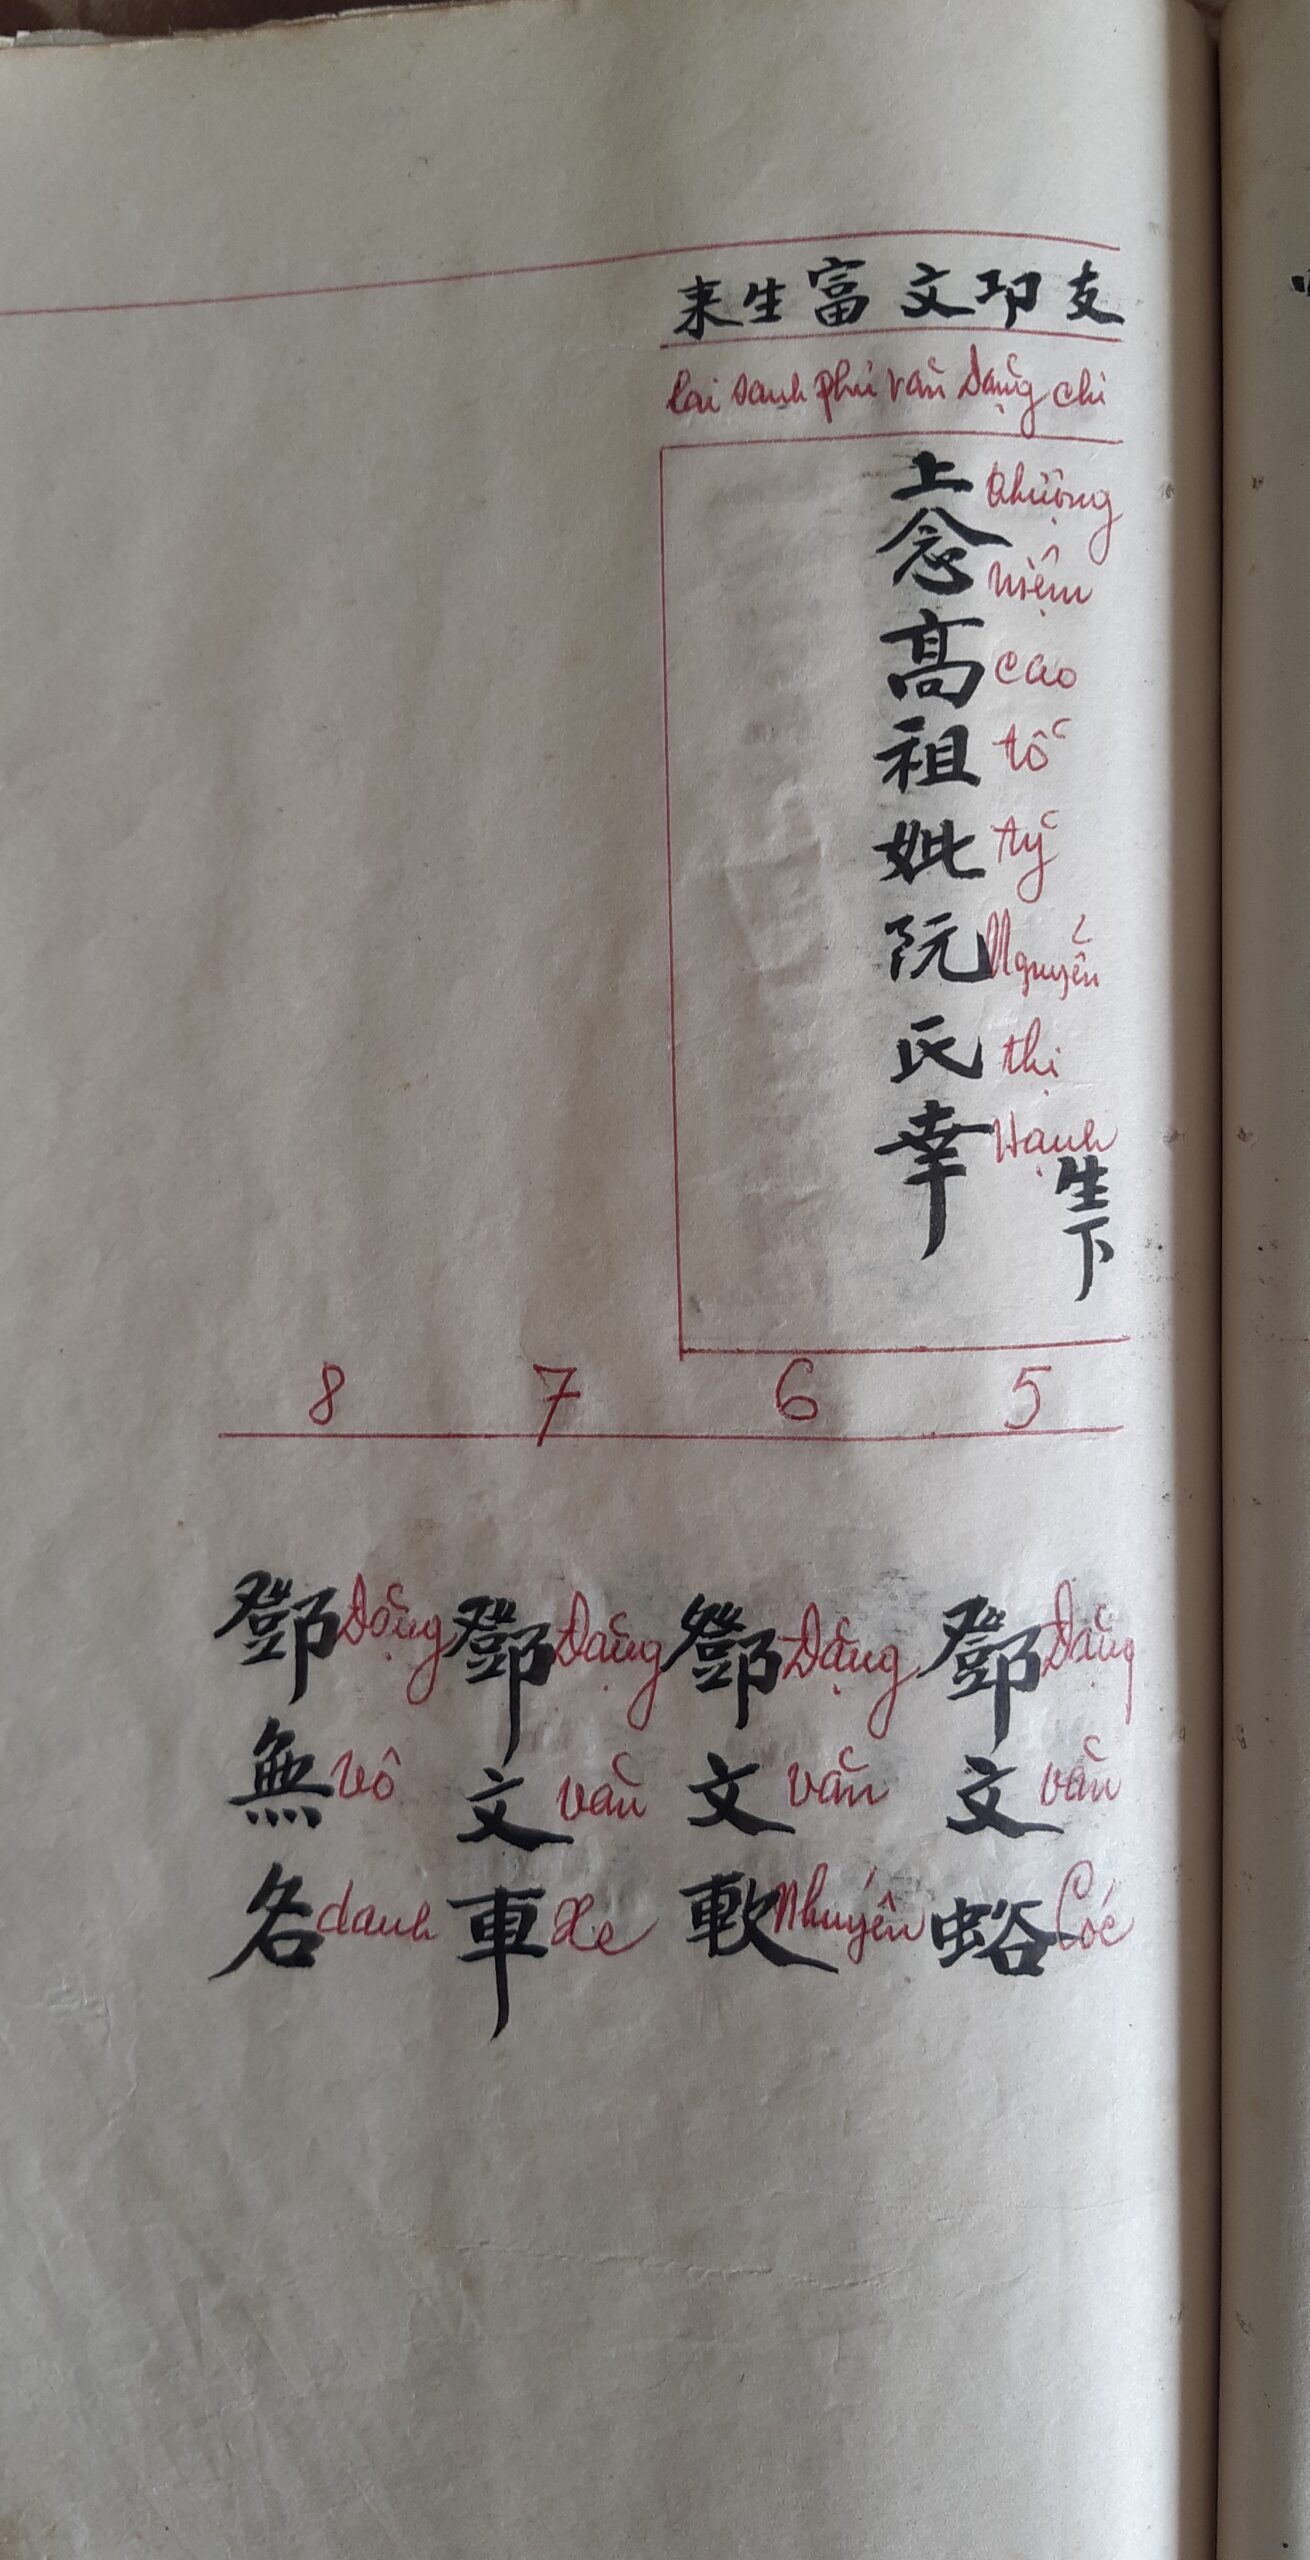 支邓文富生来
lai sanh phú văn Đặng chi
上念高祖妣阮氏幸
thượng niệm cao tổ tỷ Nguyễn thị Hạnh
生下
5
6
7
8
鄧文蛒
Đặng văn Cóc
鄧文軟
Đặng văn Nhuyễn
鄧文車
Đặng văn Xe
鄧無名
Đặng vô danh